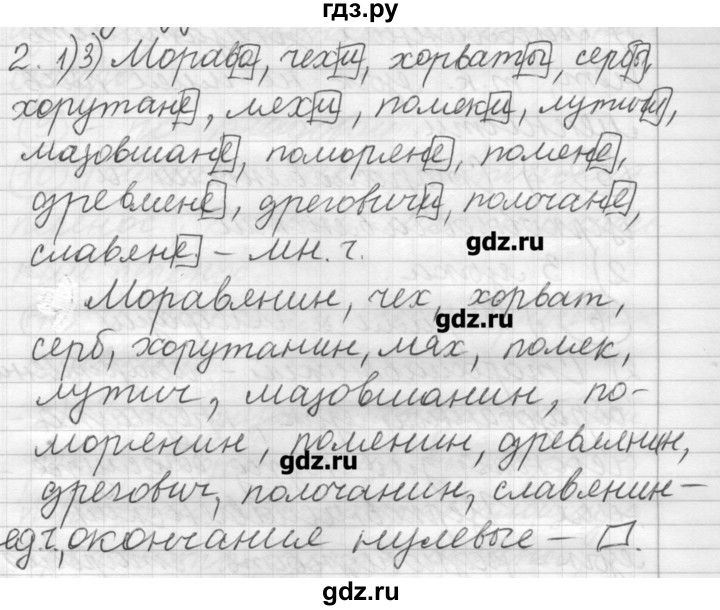 гдз.ру
2. 1)3) Морава, чехи, хорваты, сербы,
хорутане, ляхи, поляки, лутичи,
мазовшане, поморяне, поляне,
древляне, дреговичи, полочане,
славяне - мн. ч.
gdz.ru
Моравянин, чех, хорват,
gdz.ru
серб, хорутанин, лях, поляк,
лутич, мазовшанин, по-
морянин, полянин, древлянин,
gdz.ru
дрегович, полочанин, славянин -
ед.ч., окончания нулевые - .
gdz.ru